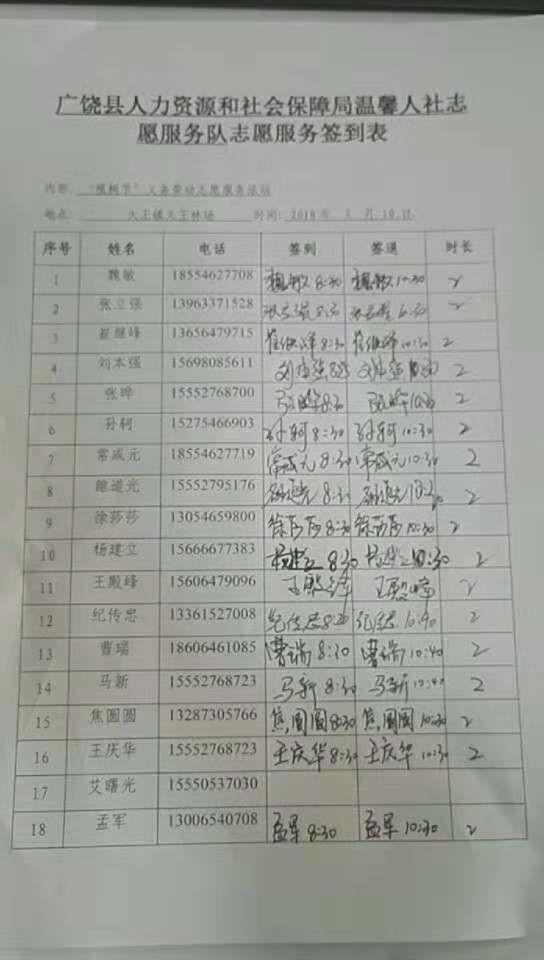 广饶县人力资源和社会保障局温馨人社志
愿服务队志愿服务签到表
内容：“植树节”义务劳动志愿服务活动
地点： 大王镇大王林场 时间：2018年 月10日
序号 姓名 电话 签到 签退 时长
1 魏敏 18554627708 魏敏 8:30 魏敏 10:30 2
2 张立强 13963371528 张立强 8:30 张立强 2
3 崔继峰 13656479715 崔继峰 8:30 崔继峰 10:30 2
4 刘本强 15698085611 刘本强 刘本强 2
5 张晔 15552768700 张晔 8:30 张晔 10:30 2
6 孙轲 15275466903 孙轲 8:30 孙轲 10:30 2
7 常成元 18554627719 常成元 8:30 常成元 10:30 2
8 道光 15552795176 8:30 2
9 徐莎莎 13054659800 徐莎莎 8:30 徐莎莎 10:30 2
10 杨建立 15666677383 杨建立 8:30 杨建立 10:30 2
11 王殿峰 15606479096 王殿峰 王殿峰 2
12 纪传忠 13361527008 纪传忠 8:20 纪传忠 10:40 2
13 曹瑞 18606461085 曹瑞 8:30 曹瑞 10:40 2
14 马新 15552768723 马新 8:30 马新 10:40 2
15 焦圆圆 13287305766 焦圆圆 8:30 焦圆圆 10:30 2
16 王庆华 15552768723 王庆华 8:30 王庆华 10:30 2
17 艾曙光 15550537030
18 孟军 13006540708 孟军 8:30 孟军 10:30 2